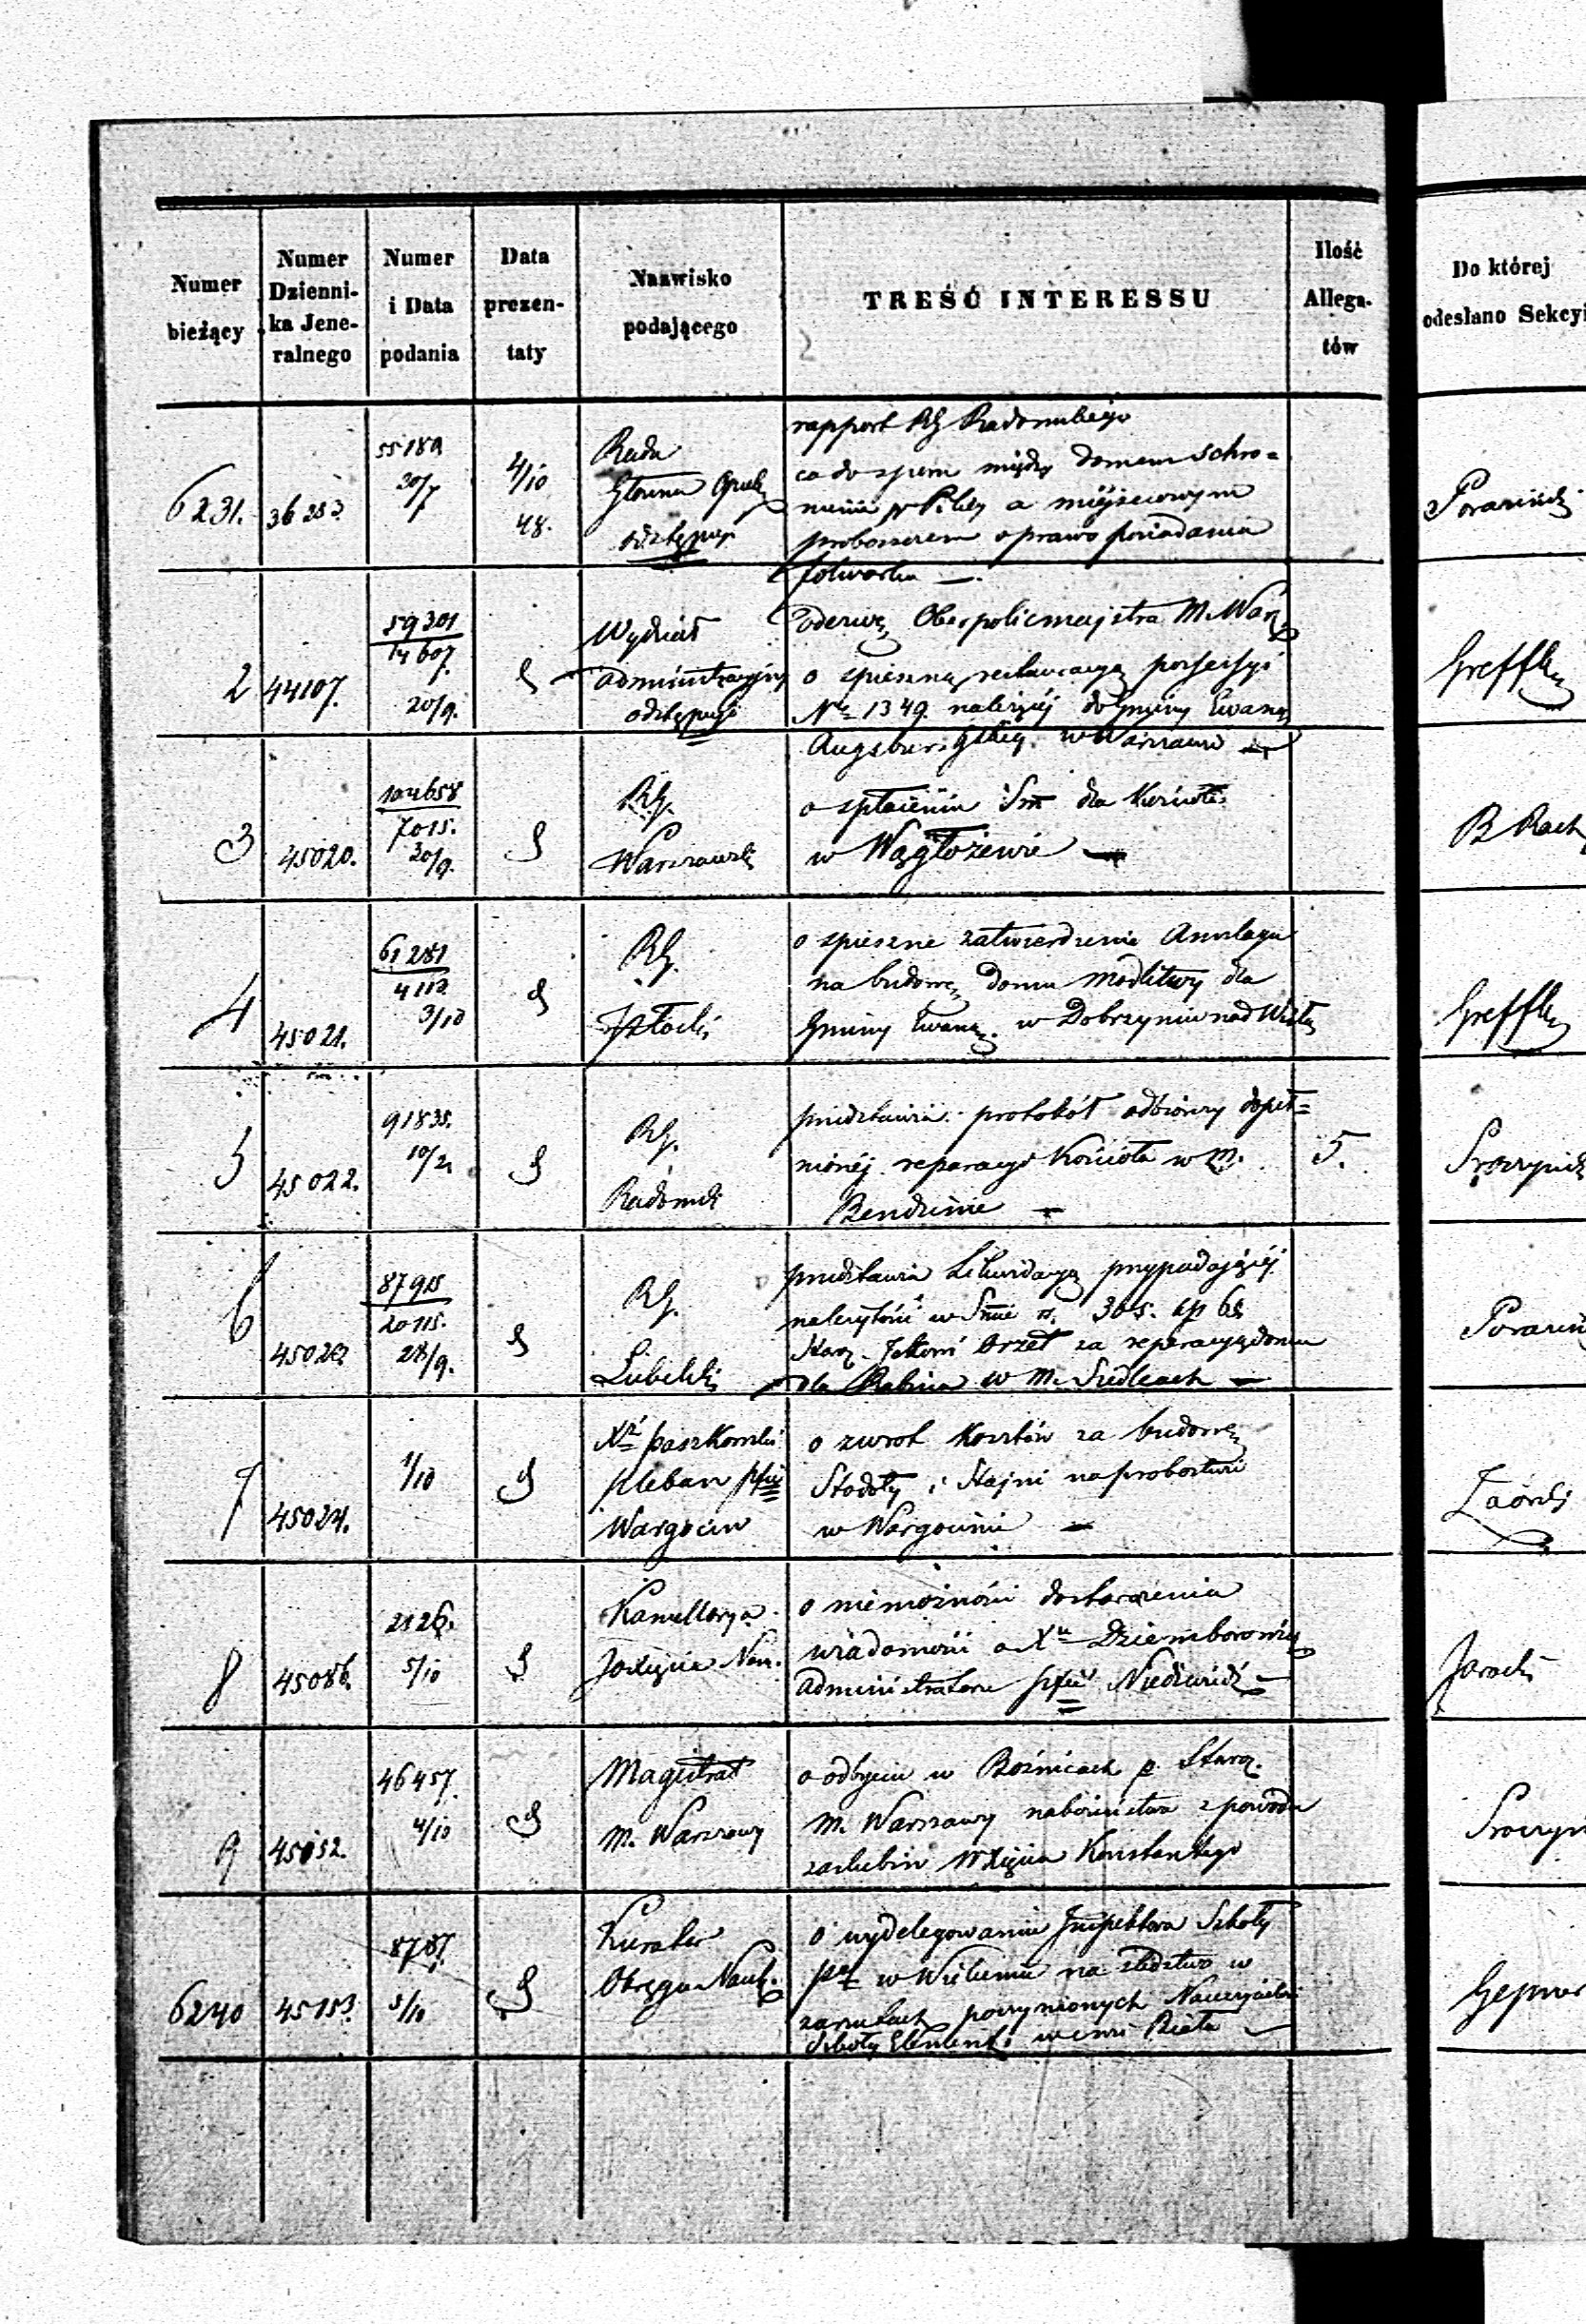 Numer bieżący
Numer Dzienni-ka Jene-ralnego
Numer i Data podania
Data prezen-taty
Nazwisko podającego
TREŚĆ INTERESSU
Ilość Allega-tów
Do której odesłano Sekcyi
6231.
55189
30/7
4/10
48.
Rada
Główna Opiek
odstępuje
rapport RG Radomskiego
co do sporu między domem schro=
nienia w Pilicy a miejscowym
proboszczem o prawo posiadania
folwarku —.
2
44107.
59301
14607.
20/9.
Wydział
administracyjny
odstępuje
odezwę Oberpolicmajstra M. Warsz
o spieszną restauracyą possessyi
Nr 1349. należącej do Gminy Ewang
Augsburgskiej w Warszawie —
Greffk
3
45020.
7015.
30/9.
RG.
Warszawski
o spłacenie Sm dla Kościoła
w —
B Rach
4
45021.
61281
3/10
RG.
Płocki
o spieszne zatwierdzenie Anschlagu
na budowę domu modlitwy dla
Gminy Ewang. w Dobrzyniu nad Wisłą
Greffk
5
45022.
91835.
10/2.
RG.
Radomski
przedstawia protokół odbiorczy dopeł=
nionéj reparacyi Kościoła w m.
Bendzinie —
5.
6
45023
20115.
28/9.
RG.
Lubelski
przedstawia Likwidacyą przypadającéj
należytości w Smie
Starz. Orzeł za reperacyą domu
dla Rabina w m. Siedlcach —
7
45024.
1/10
Xdz Paszkowski
pleban pfii
Wargocin
o zwrot kosztów za budowę
Stodoły i Stajni na probostwie
w Wargocinie —
8
45086.
2826.
5/10
Kancellarya
Xięcia Nam.
o niemożności dostarczenia
wiadomości o Xu Dziemborowiczu
administratorze pfii Niedźwiedź —
9
45052.
46457.
4/10
Magistrat
m. Warszawy
o odbyciu w Bożnicach p. Starz.
m. Warszawy nabożeństwa z powodu
zaślubin W Xięcia Konstantego
6240
45153.
8787.
5/10
Kurator
Okręgu Nauk.
o wydelegowanie Inspektora Szkoły
w Wieluniu na śledztwo w
zarzutach poczynionych Nauczycielowi
Szkoły Element. we wsi Biała —